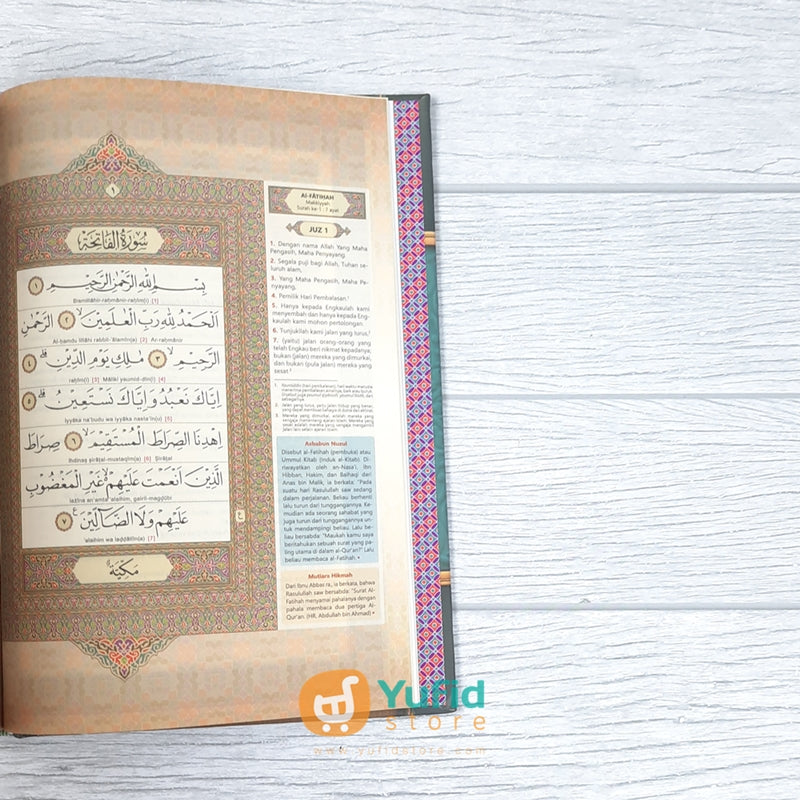 ١
سُورَةُ الْفَاتِحَةِ
بِسْمِ اللّٰهِ الرَّحْمٰنِ الرَّحِيْمِ ١
Bismillāhir-raḥmānir-raḥīm(i) [1]
اَلْحَمْدُ لِلّٰهِ رَبِّ الْعٰلَمِيْنَۙ ٢ الرَّحْمٰنِ
Al-ḥamdu lillāhi rabbil-‘ālamīn(a) [2] Ar-raḥmānir
الرَّحِيْمِۙ ٣ مٰلِكِ يَوْمِ الدِّيْنِۗ ٤
raḥīm(i) [3] Māliki yaumid-dīn(i) [4]
اِيَّاكَ نَعْبُدُ وَاِيَّاكَ نَسْتَعِيْنُۗ ٥
Iyyāka na‘budu wa iyyāka nasta‘īn(u) [5]
اِهْدِنَا الصِّرَاطَ الْمُسْتَقِيْمَۙ ٦ صِرَاطَ
Ihdinaṣ ṣirāṭal-mustaqīm(a) [6] Ṣirāṭal
الَّذِيْنَ اَنْعَمْتَ عَلَيْهِمْۙ غَيْرِ الْمَغْضُوْبِ
lażīna an‘amta ‘alaihim, gairil-magḍūbi
عَلَيْهِمْ وَلَا الضَّاۤلِّيْنَ ٧
‘alaihim wa laḍḍāllīn(a) [7]
مَكِّيَّة
Al-FĀTIḤAH
Makkiyyah
Surah ke-1 : 7 ayat
JUZ 1
1. Dengan nama Allah Yang Maha
Pengasih, Maha Penyayang.
2. Segala puji bagi Allah, Tuhan se-
luruh alam,
3. Yang Maha Pengasih, Maha Pe-
nyayang,
4. Pemilik Hari Pembalasan.¹
5. Hanya kepada Engkaulah kami
menyembah dan hanya kepada Eng-
kaulah kami mohon pertolongan.
6. Tunjukilah kami jalan yang lurus,²
7. (yaitu) jalan orang-orang yang
telah Engkau beri nikmat kepadanya;
bukan (jalan) mereka yang dimurkai,
dan bukan (pula jalan) mereka yang
sesat.³
Asbabun Nuzul
Disebut al-Fatihah (pembuka) atau
Ummul Kitab (induk al-Kitab). Di-
riwayatkan oleh an-Nasa'i, Ibn
Hibban, Hakim, dan Baihaqi dari
Anas bin Malik, ia berkata: "Pada
suatu hari Rasulullah saw sedang
dalam perjalanan. Beliau berhenti
lalu turun dari tunggangannya. Ke-
mudian ada seorang sahabat yang
juga turun dari tunggangannya un-
tuk mendampingi beliau. Lalu be-
liau bersabda: "Maukah kamu saya
beritahukan sebuah surat yang pa-
ling utama di dalam al-Qur'an?" Lalu
beliau membaca al-Fatihah. •
Mutiara Hikmah
Dari Ibnu Abbas ra., ia berkata, bahwa
Rasulullah saw bersabda: "Surat Al-
Fatihah menyamai pahalanya dengan
pahala membaca dua pertiga Al-
Qur'an. (HR. Abdullah bin Ahmad) •
Yufid
store
www.yufidstore.com